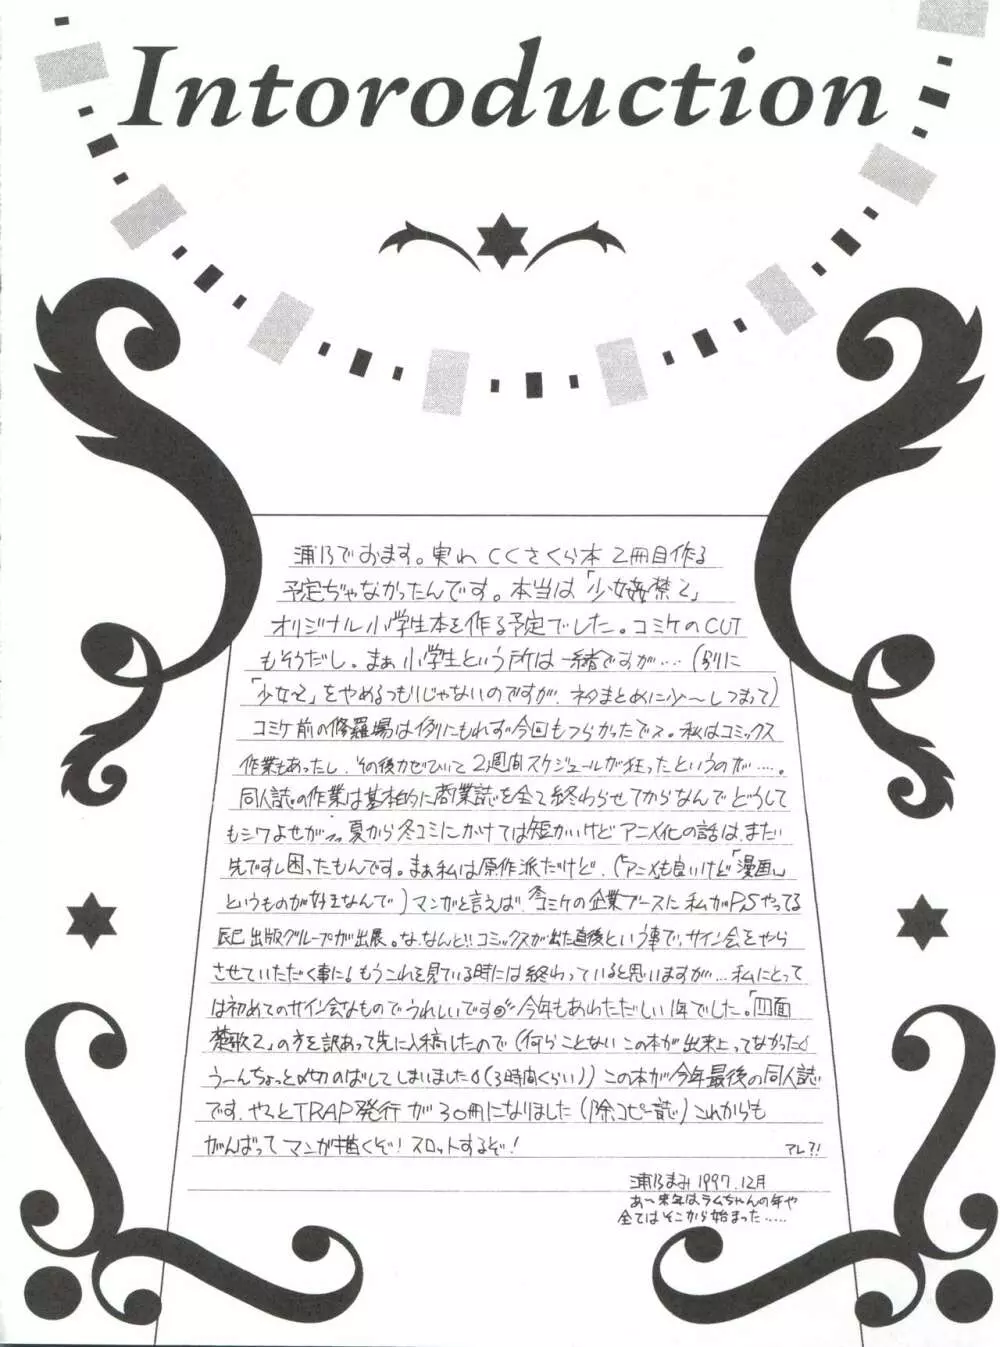 Intoroduction
浦乃でおます。実わCCさくら本2冊目作る
予定ぢゃなかったんです。本当は「少女姦禁2」
オリジナル小学生本を作る予定でした。コミケのCUT
もそうだし。まぁ小学生という所は一緒ですが…(別に
「少女2」をやめるつもりじゃないのですが、ネタまとめに少〜しつまって)
コミケ前の修羅場は例にもれず今回もつらかったでス。私はコミックス
作業もあったし、その後カゼひいて2週間スケジュールが狂ったというのが……。
同人誌の作業は基本的に商業誌を全て終わらせてからなんでどうして
もシワよせが 夏から冬コミにかけては短かいけどアニメ化の話は、まだ
先ですし困ったもんです。まぁ私は原作派だけど、(「アニメも良いけど「漫画」
というものが好きなんで)マンガと言えば、冬コミケの企業ブースに私がP,Sやってる
辰巳出版グループが出展。な、なんと!!コミックスが出た直後という事で、サイン会をやら
させていただく事に!もうこれを見ている時には終わっていると思いますが…私にとって
は初めてのサイン会なものでうれしいです 今年もあわただしい1年でした。「四面
楚歌2」の方を訳あって先に入稿したので(何らことないこの本が出来上ってなかった
う〜んちょっと〆切のばしてしまいました(3時間くらい))この本が今年最後の同人誌
です、やっとTRAP発行が30冊になりました(除コピー誌)これからも
がんばってマンガ描くぞ!スロットするぞ!
アレ?!
浦乃まみ 1997.12月
あ〜来年はラムちゃんの年や
全てはそこから始まった……